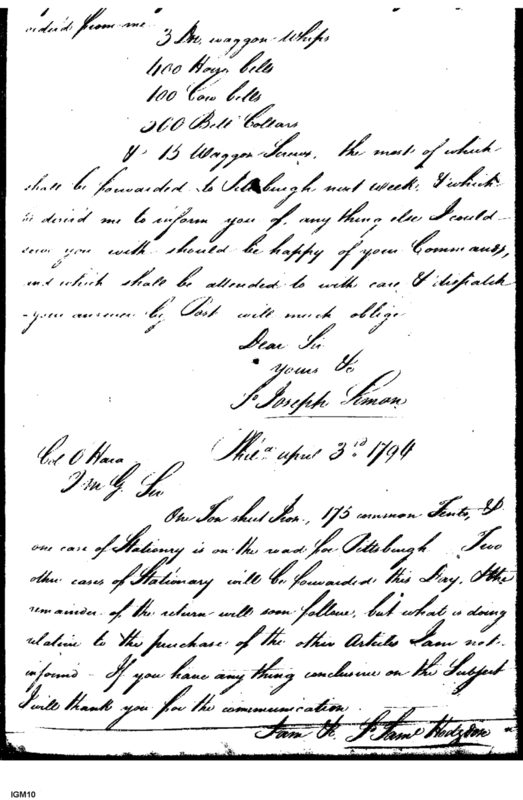 orderd from me
3 Doz waggon Whips
400 Horse bells
100 Cow bells
500 Bell Collars
& 15 Waggon Screws, the most of which
shall be forwarded to Pittsburgh next week, & which
he desir'd me to inform you of, any thing else I could
serve you with should be happy of your Commands,
and which shall be attended to with care & dispatch
your answer by Post will much oblige
Dear Sir
yours &c
Joseph Simon
Philaa april 3rd 1794
Col O Hara
Q M G Sir
One Ton sheet Iron, 175 common Tents, &
one case of Stationry is on the road for Pittsburgh Two
other cases of Stationary will be forwarded this Day, & the
remainder of the return will soon follow, but what is doing
relative to the purchase of the other Articles I am not
informd If you have any thing conclusive on the Subject
I will thank you for the communication
I am Saml Hodgdon
IGM10